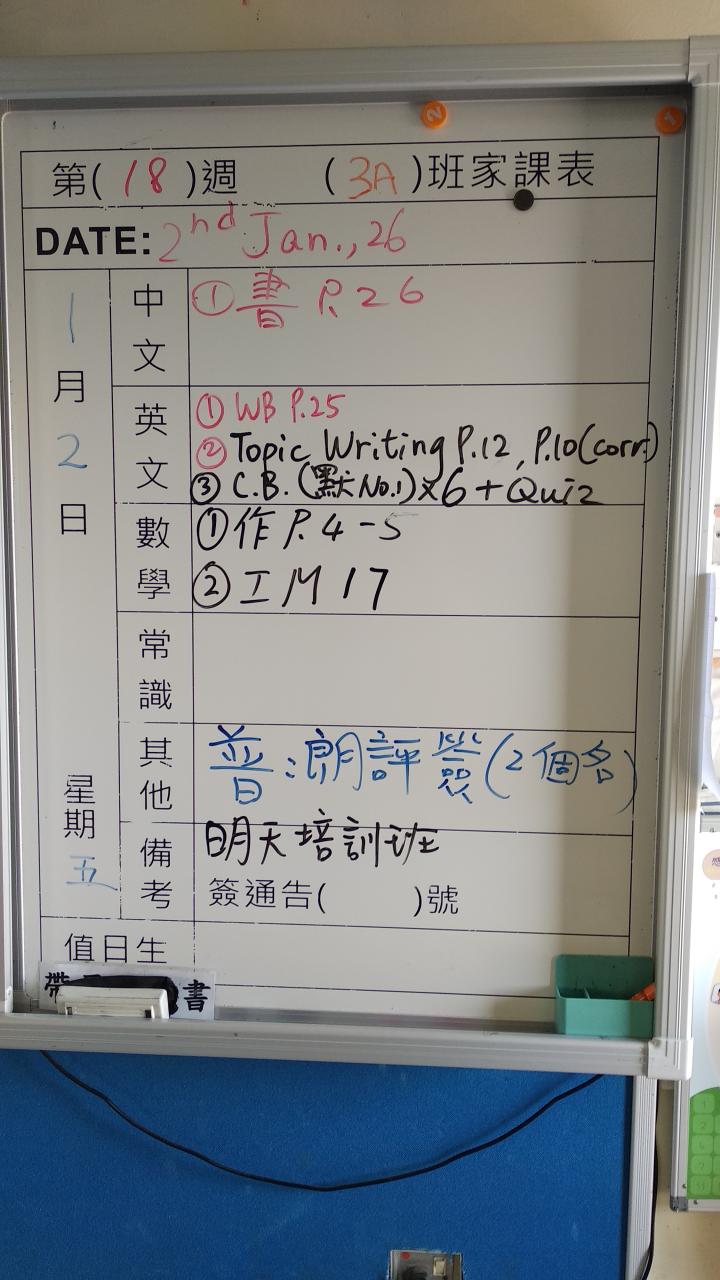 第(18)週 (3A)班家課表
DATE: 2nd Jan., 26
1月2日
星期五
中文
①書 P.26
英文
①WB P.25
②Topic Writing P.12, P.10(corr.)
③C.B. (默No.1)×6+Quiz
數學
①作 P.4-5
②工M17
常識
其他
普:朗評簽(2個名)
備考
明天培訓班
簽通告( )號
值日生
帶 書
2
1